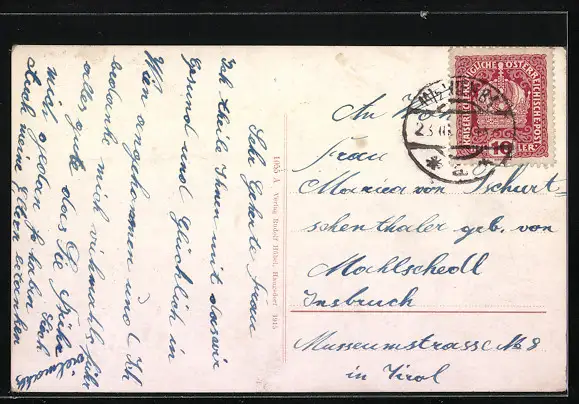 Sehr Geherte Frau
Ich theile Ihnen mit dass wir
Gesund und Glücklich in
Wien angekommen und Ich
bedanke mich vielmahls für
alles gute das Sie für
mich gethan haben Auch
Auch meine Eltern bedanken
vielmahls
1055 A Verlag Rudolf Hübel, Haugsdorf 1915
KAISERLICHE KÖNIGLICHE ÖSTERREICHISCHE POST
10 HELLER
An
Frau
Marica von Tschurt-
schenthaler geb. von
Mahlschedl
Insbruch
Museumstrasse No 8
in Tirol